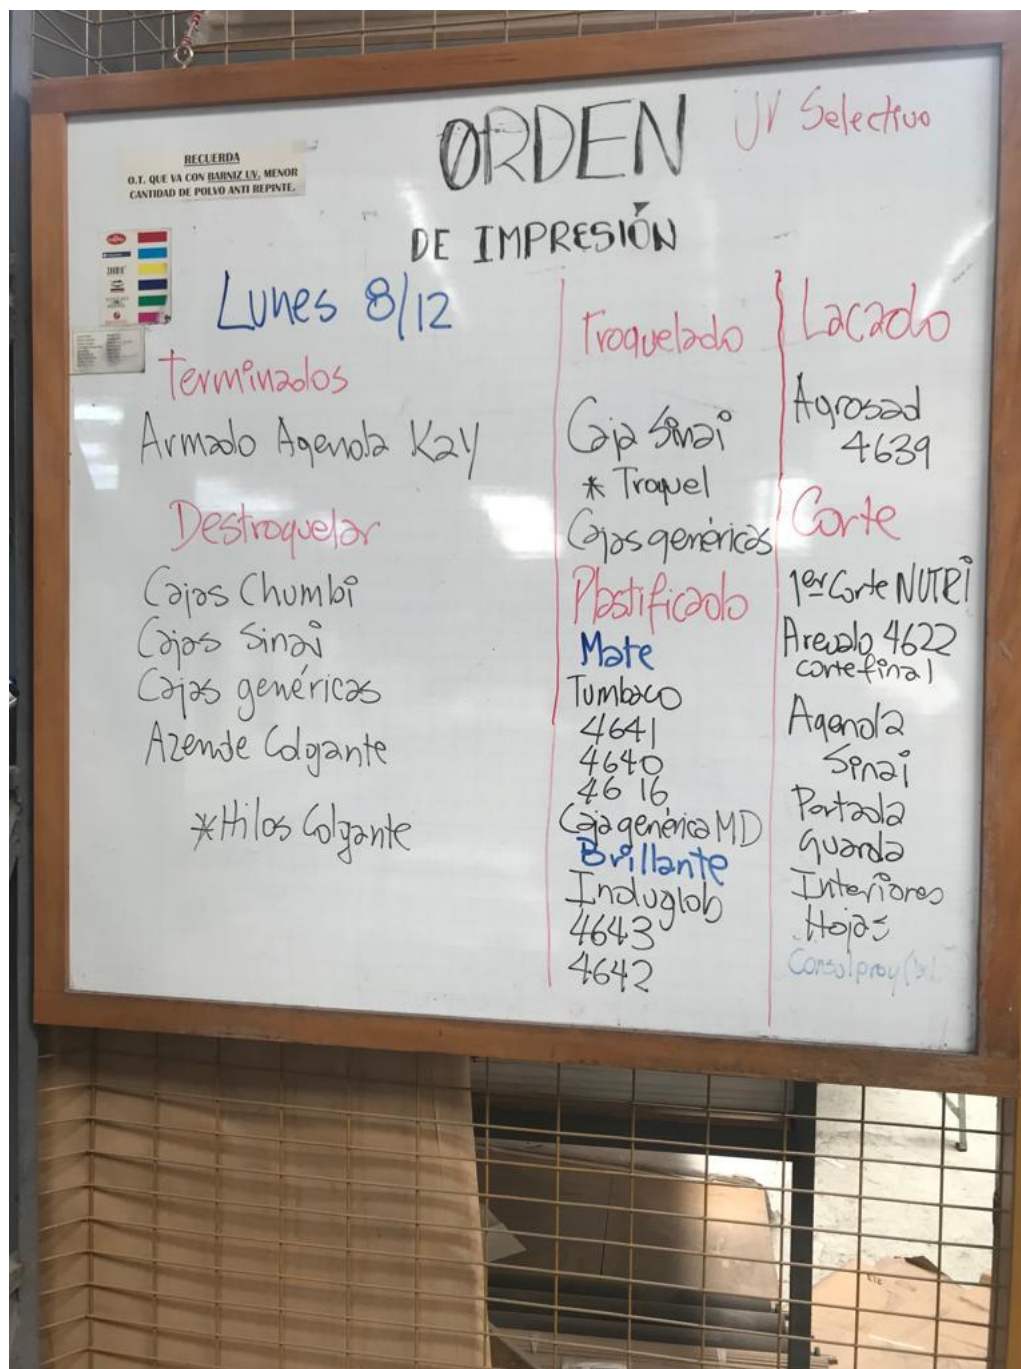 ORDEN
UV Selectivo
RECUERDA
O.T. QUE VA CON BARNIZ UV, MENOR
CANTIDAD DE POLVO ANTI REPINTE.
DE IMPRESIÓN
Lunes 8/12
Terminados
Armado Agenda Kay
Destroquelar
Cajas Chumbi
Cajas Sinai
Cajas genéricas
Azende Colgante
*Hilos Colgante
Troquelado
Caja Sinai
* Troquel
Cajas genéricas
Plastificado
Mate
Tumbaco
4641
4640
4616
Caja genérica MD
Brillante
Induglob
4643
4642
Lacado
Agrosad
4639
Corte
1er Corte NUTRI
Arevalo 4622
corte final
Agenda
Sinai
Portada
Guarda
Interiores
Hojas
Consulproy